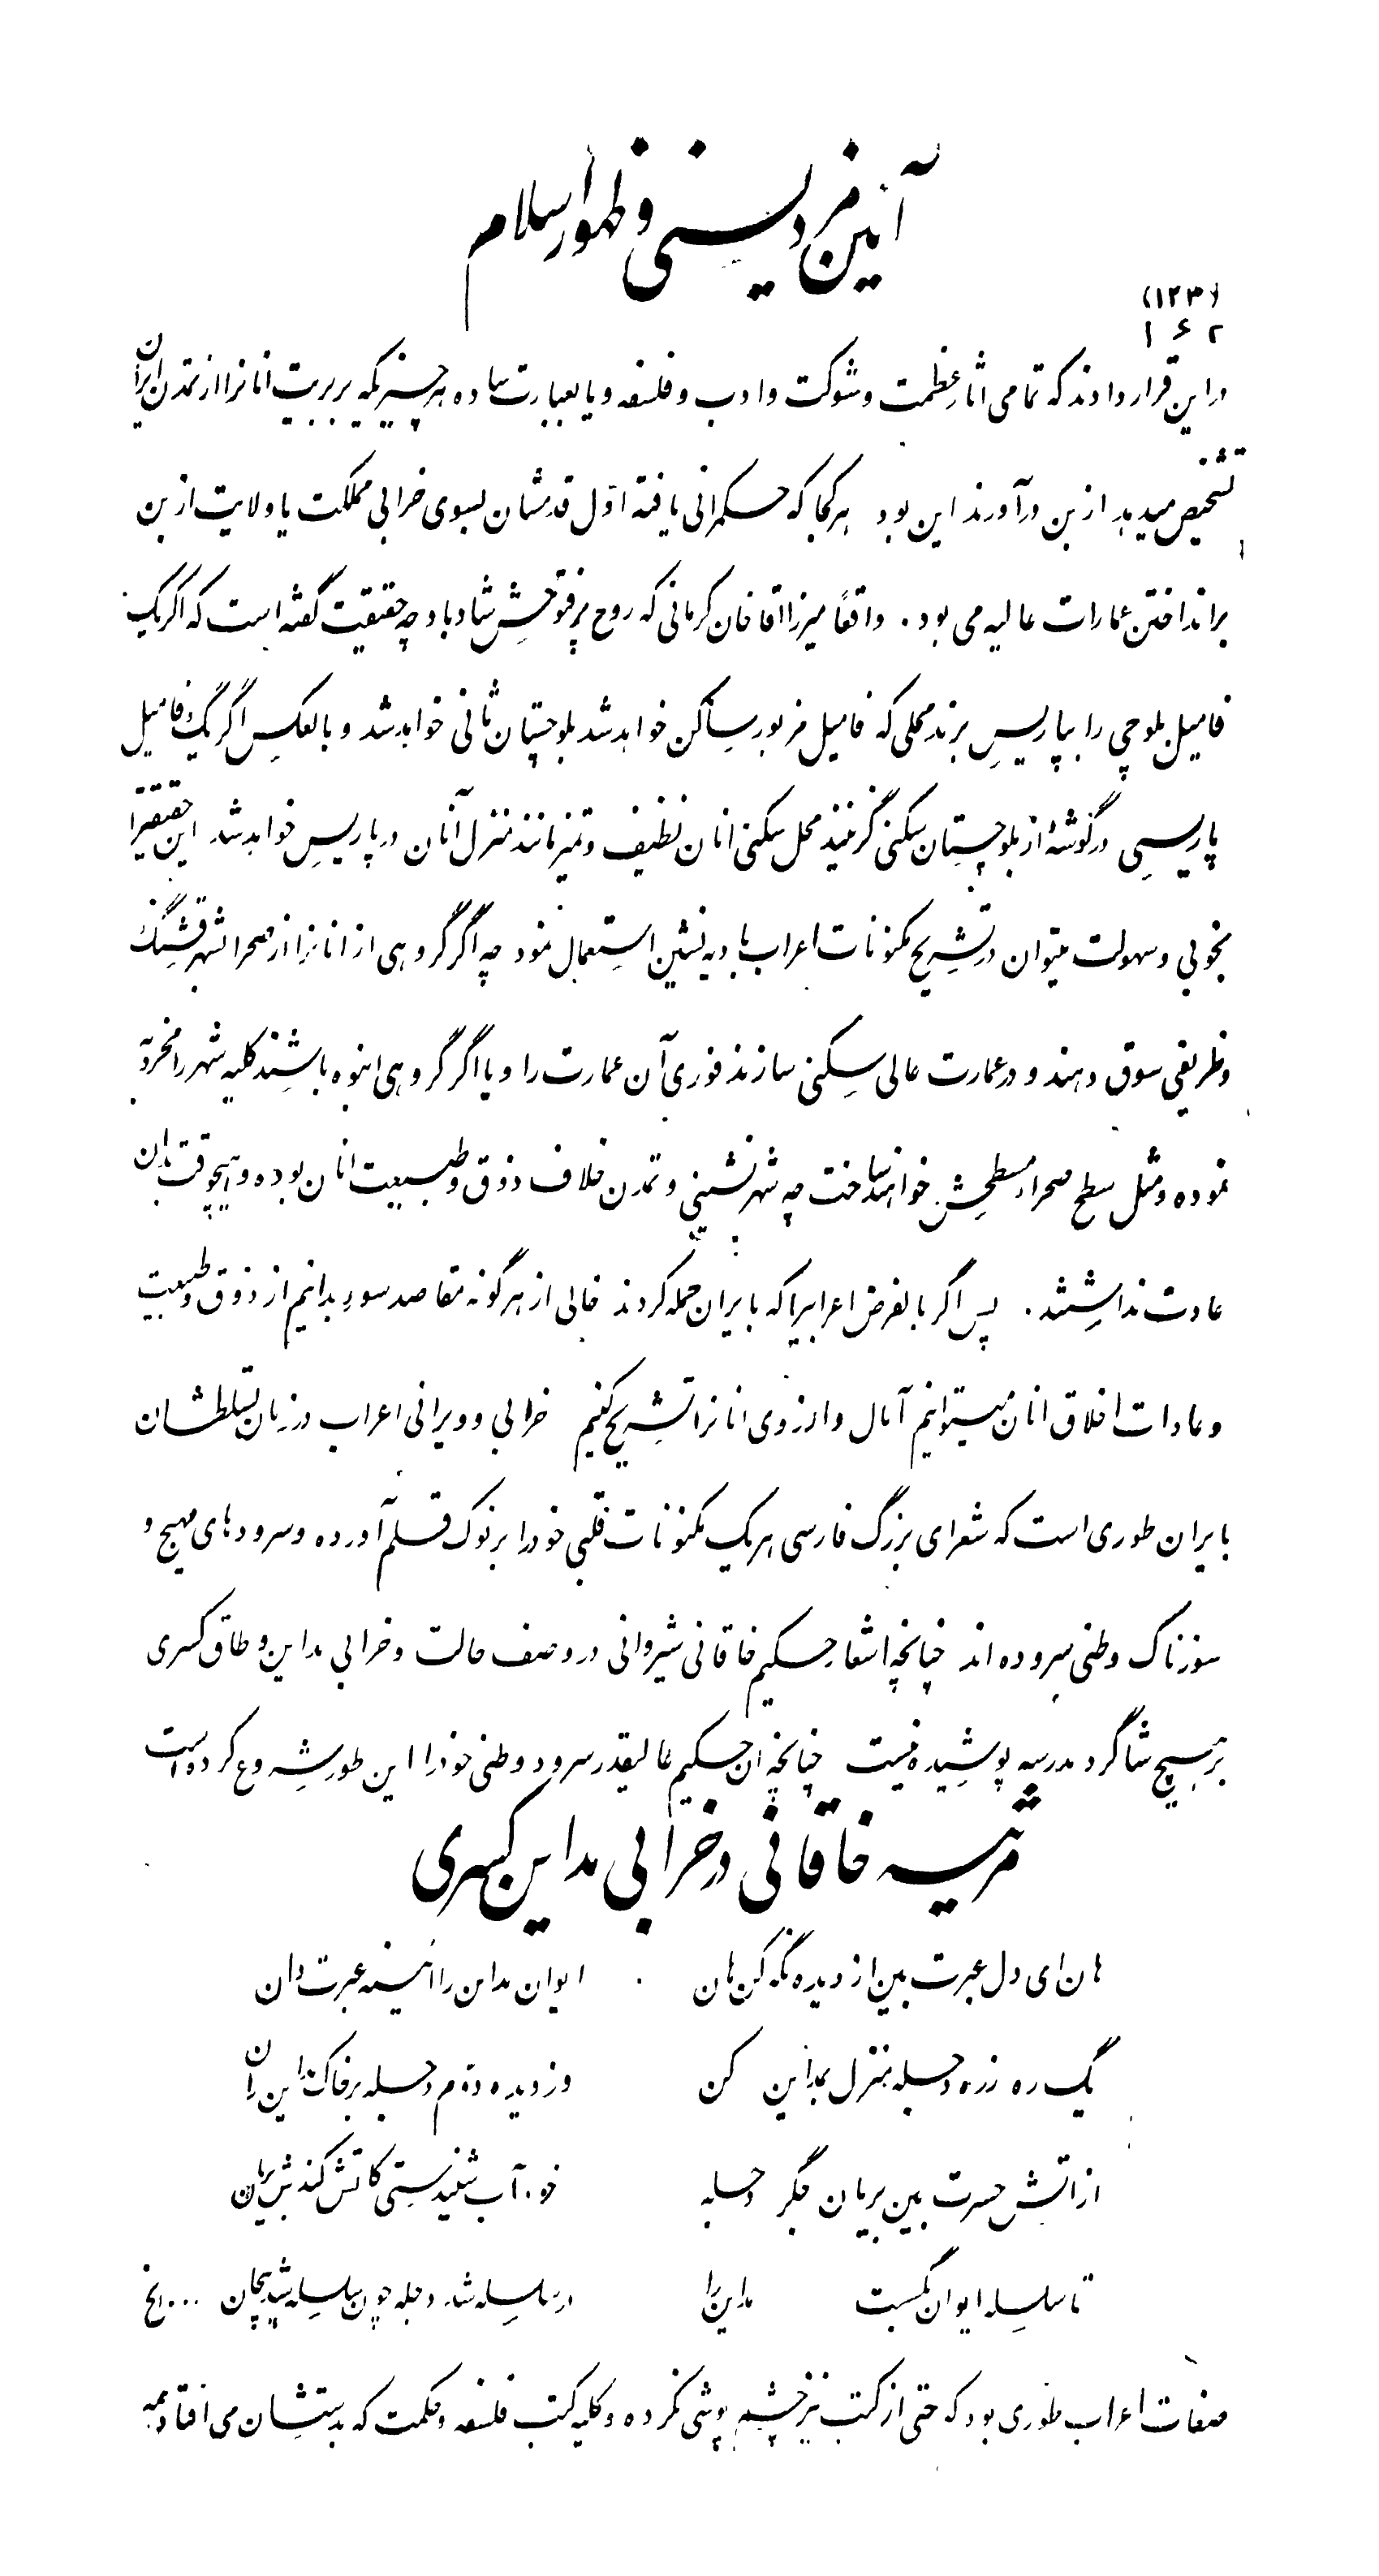 آئین مزدیسنی و ظهور اسلام
(۱۲۳)
۱۶۲
در این قرار دادند که تمامی اثار عظمت و شوکت و ادب و فلسفه و یا بعبارت ساده هر چیزیکه بربریت انانرا از تمدن ایران
تشخیص میدهد از بن درآورند این بود هر کجا که حکمرانی یافته اوّل قدمشان بسوی خرابی مملکت یا ولایت از بن
برانداختن عمارات عالیه می بود. واقعاً میرزا اقاخان کرمانی که روح پرفتوحش شاد باد چه حقیقت گفته است که اگر یک
فامیل بلوچی را بپاریس برند محلی که فامیل مزبور ساکن خواهد شد بلوچستان ثانی خواهد شد و بالعکس اگر یک فامیل
پاریسی در گوشهٔ از بلوچستان سکنی گزینند محل سکنی انان نظیف و تمیز مانند منزل آنان در پاریس خواهد شد این حقیقترا
بخوبی و سهولت میتوان در تشریح مکنونات اعراب بادیه نشین استعمال نمود چه اگر گروهی از انانرا از صحرا بشهر قشنگ
و ظریفی سوق دهند و در عمارت عالی سکنی سازند فوری آن عمارت را و یا اگر گروهی انبوه باشند کلیه شهر را مخروبه
نموده و مثل سطح صحراء مسطحش خواهند ساخت چه شهرنشینی و تمدن خلاف ذوق و طبیعت انان بوده و هیچوقت بدان
عادت نداشتند. پس اگر بالفرض اعرابیرا که بایران حمله کردند خالی از هرگونه مقاصد سوء بدانیم از ذوق و طبیعت
و عادات اخلاق انان میتوانیم آمال و ارزوی انانرا تشریح کنیم خرابی و ویرانی اعراب در زمان تسلطشان
بایران طوری است که شعرای بزرگ فارسی هر یک مکنونات قلبی خود را بر نوک قلم آورده و سرودهای مهیج و
سوزناک وطنی سروده اند چنانچه اشعار حکیم خاقانی شیروانی در وصف حالت و خرابی مداین و طاق کسری
بر هیچ شاگرد مدرسه پوشیده نیست چنانچه ان حکیم عالیقدر سرود وطنی خود را این طور شروع کرده است
مرثیه خاقانی در خرابی مداین کسری
هان ای دل عبرت بین از دیده نگه کن هان ایوان مداین را ائینه عبرت دان
یک ره زره دجله منزل بمداین کن وز دیده دوّم دجله بر خاک مداین ران
از اتش حسرت بین بریان جگر دجله خود آب شنیدستی کاتش کندش بریان
تا سلسله ایوان بگسست مداین را در سلسله شد دجله چون سلسله شد پیچان ... الخ
صفات اعراب طوری بود که حتی از کتب نیز چشم پوشی نکرده و کلیه کتب فلسفه و حکمت که بدستشان می افتاد همه